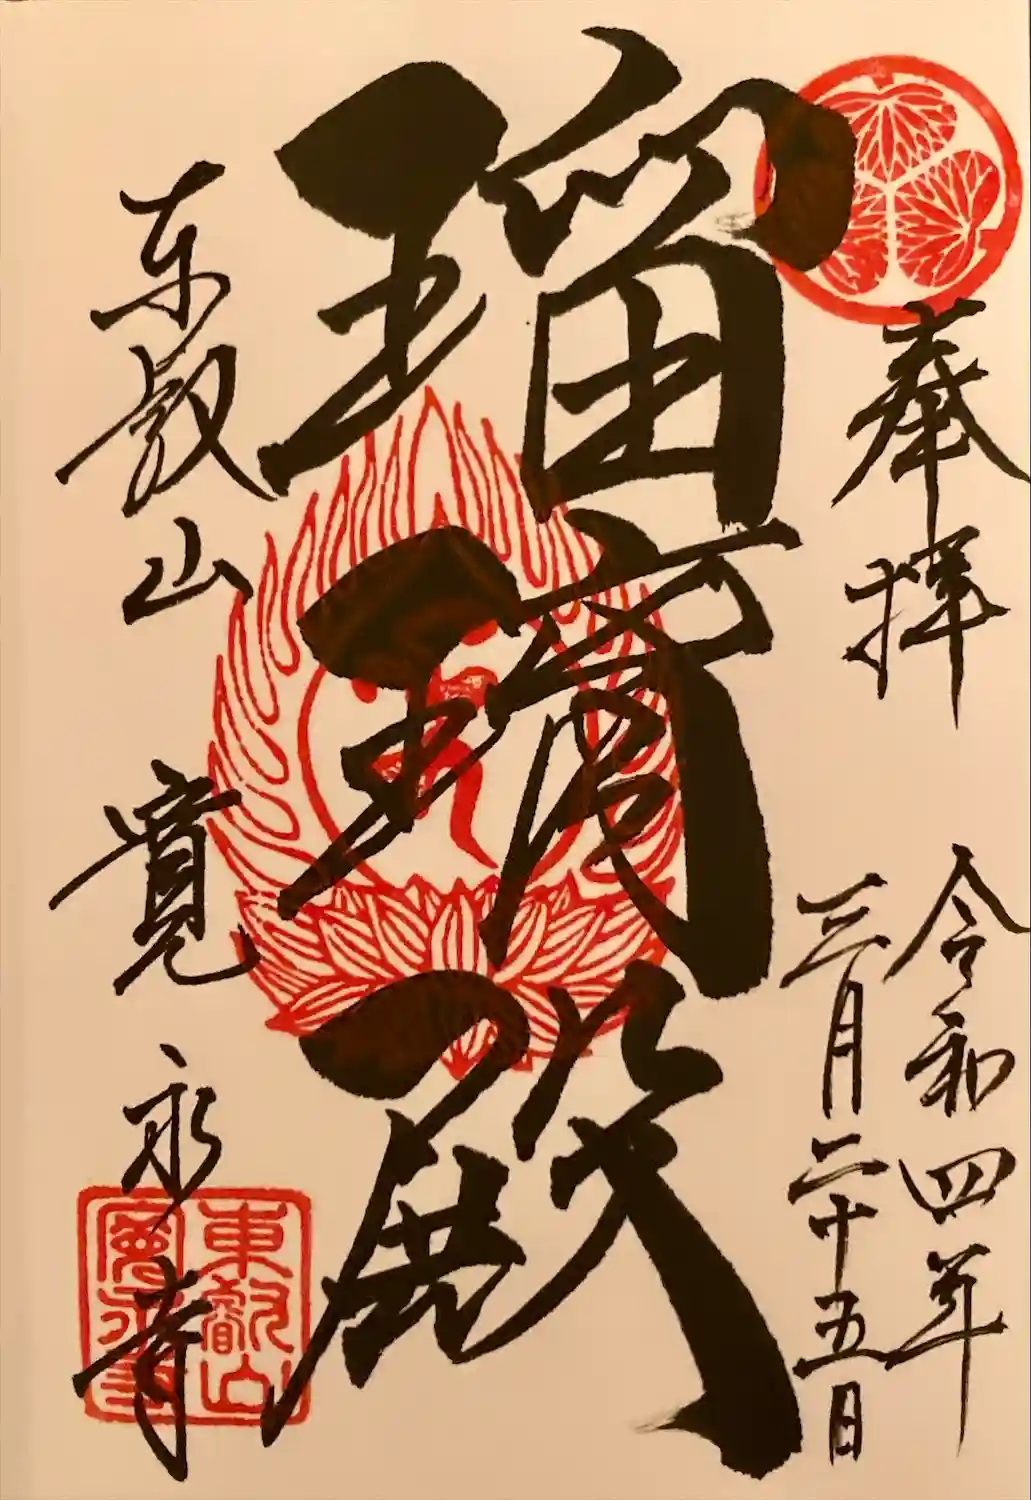 奉拝
令和四年
三月二十五日
瑠璃殿
東叡山
寛永寺
東叡山
寛永寺